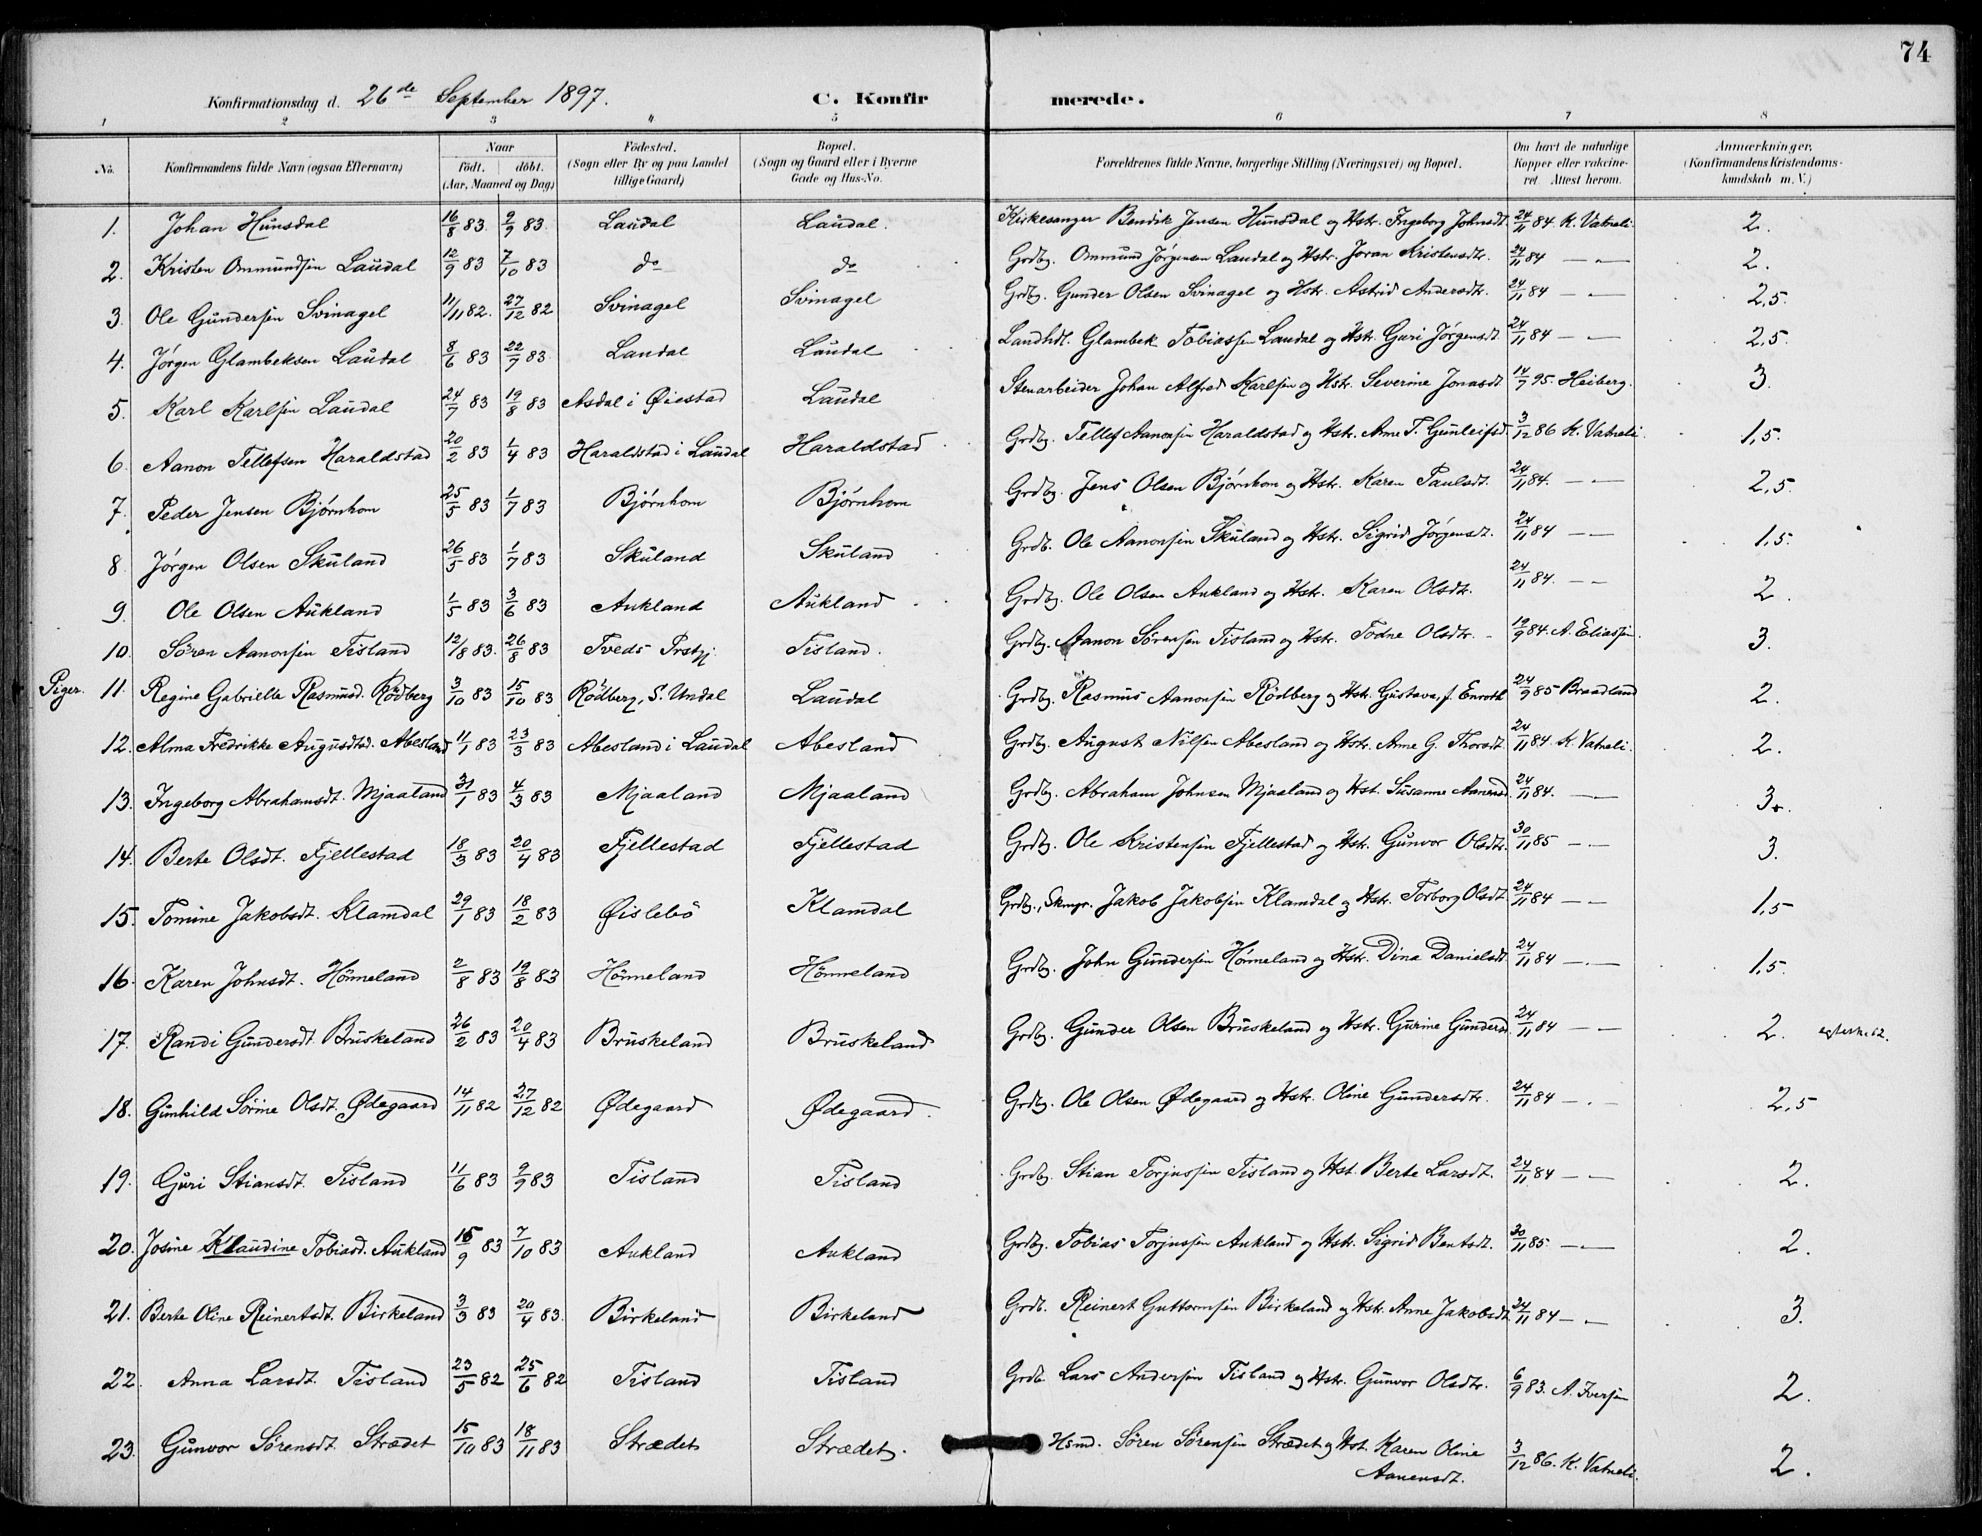 74
Konfirmationsdag d. 26de September 1897. C. Konfirmerede.
1 2 3 4 5 6 7 8
No. Konfirmandens fulde Navn (ogsaa Efternavn) Naar født. døbt. (Aar, Maaned og Dag) Fødested. (Sogn eller By og paa Landet tillige Gaard) Bopæl. (Sogn og Gaard eller i Byerne Gade og Hus-No. Forældrenes fulde Navne, borgerlige Stilling (Næringsvei) og Bopæl. Om havt de naturlige Kopper eller vakcineret. Attest herom. Anmærkninger, (Konfirmandens Kristendomskundskab m. V.)
1. Johan Hunsdal 16/8 83. 9/9 83. Laudal Laudal. Kirkesanger Bendik Jensen Hunsdal og Hstr. Ingeborg Johnsdt. 24/11 84 K. Vatneli. 2.
2. Kristen Ommundsen Laudal 12/9 83 7/10 83 do do Grdbg. Ommund Jørgensen Laudal og Hstr. Joran Kristensdtr. 24/11 84 — „ — 2.
3. Ole Gundersen Svinagel 11/11 82. 27/12 82 Svinagel Svinagel Grdbg. Gunder Olsen Svinagel og Hstr. Astrid Andersdtr. 24/11 84 — „ — 2,5.
4. Jørgen Glambeksen Laudal 8/6 83 22/7 83 Laudal Laudal Landhdl. Glambek Tobiassen Laudal og Hstr. Guri Jørgensdt. 24/11 84 — „ — 2,5.
5. Karl Karlsen Laudal 24/7 83 19/8 83 Asdal i Øiestad Laudal Stenarbeider Johan Alfred Karlsen og Hstr. Severine Jonasdt. 14/7 95. Heiberg. 3.
6. Aanon Tellefsen Haraldstad 20/2 83 1/4 83 Haraldstad i Laudal Haraldstad Grdbg. Tellef Aanonsen Haraldstad og Hstr. Anne T. Gunleifsd. 3/12 86 K. Vatneli. 1,5.
7. Peder Jensen Bjørnhom 25/5 83 1/7 83 Bjørnhom Bjørnhom Grdbg. Jens Olsen Bjørnhom og Hstr. Karen Paulsdt. 24/11 84. — „ — 2,5.
8 Jørgen Olsen Skuland 26/5 83 1/7 83 Skuland Skuland Grdb. Ole Aanonsen Skuland og Hstr. Sigrid Jørgensdt. 24/11 84 — „ — 1,5.
9. Ole Olsen Aukland 1/5 83 3/6 83 Aukland Aukland Grdbg. Ole Olsen Aukland og Hstr. Karen Olsdtr. 24/11 84. — „ — 2.
10. Sören Aanonsen Tisland 12/8 83. 26/8 83 Tveds Prstgj. Tisland. Grdbg. Aanon Sørensen Tisland og Hstr. Todne Olsdtr. 19/9 84. A. Eliassen. 3.
Piger. 11. Regine Gabrielle Rasmusd. Rödberg 3/10 83 15/10 83 Rödberg, S. Undal Laudal Grdbg. Rasmus Aanonsen Rødberg og Hstr. Gustava, f. Enroth 24/9 85 Braadland 2.
12. Alma Fredrikke Augusdtd. Abesland 11/1 83 23/3 83 Abesland i Laudal Abesland Grdbg. August Nilsen Abesland og Hstr. Anne G. Thorsdt. 24/11 84. K. Vatneli. 2.
13. Ingeborg Abrahamsdt. Mjaaland 31/1 83 4/3 83 Mjaaland Mjaaland Grdbg. Abraham Johnsen Mjaaland og Hst. Susanne Aanensd. 24/11 84. — „ — 3+.
14. Berte Olsdt. Fjellestad 18/3 83 20/4 83 Fjellestad Fjellestad Grdbg. Ole Kristensen Fjellestad og Hstr. Gunvor Olsdtr. 30/11 85 — „ — 3.
15. Tomine Jakobsdt. Klamdal 29/1 83 18/2 83 Øislebö Klamdal Grdbg., Skmgr. Jakob Jakobsen Klamdal og Hstr. Torborg Olsdt. 24/11 84 — „ — 1,5
16. Karen Johnsdt. Hönneland 2/8 83 19/8 83 Hönneland Hönneland Grdbg. John Gundersen Hönneland og Hstr. Dina Danielsdt 24/11 84 — „ — 1,5.
17. Randi Gundersdt. Bruskeland 26/2 83 20/4 83 Bruskeland Bruskeland Grdbg. Gunder Olsen Bruskeland og Hstr. Gurine Gundersd. 24/11 84 — „ — 2.
18. Gunhild Sörine Olsdt. Ødegaard 14/11 82 27/12 82 Ødegaard Ødegaard. Grdbg. Ole Olsen Ødegaard og Hstr. Oline Gundersdtr. 24/11 84 — „ — 2,5
19. Guri Stiansdt. Tisland 11/6 83 9/9 83 Tisland Tisland Grdbg. Stian Torjussen Tisland og Hst. Berte Larsdt. 24/11 84 — „ — 2.
20. Josine Klaudine Tobiasd. Aukland 15/9 83 7/10 83 Aukland Aukland Grdbg. Tobias Torjussen Aukland og Hstr. Sigrid Bentsdt. 30/11 85. — „ — 2.
21. Berte Oline Reinertsdt. Birkeland 3/3 83 20/4 83. Birkeland Birkeland Grdb. Reinert Guttormsen Birkeland og Hstr. Anne Jakobsdt 24/11 84 — „ — 3.
22. Anna Larsdt. Tisland 23/5 82 25/6 82 Tisland Tisland Grdb. Lars Andersen Tisland og Hstr. Gunvor Olsdtr. 6/9 83. A. Iversen 2.
23. Gunvor Sørensdt. Strædet 15/10 83 18/11 83 Strædet Strædet. Hsmd. Søren Sørensen Strædet og Hst. Karen Oline Aanensdt. 3/12 86. K. Vatneli. 2.